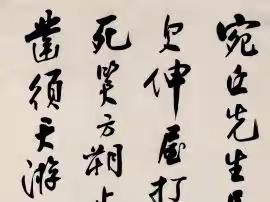 宛丘先生
欠伸屋打
死笑方朔
鑿須天游